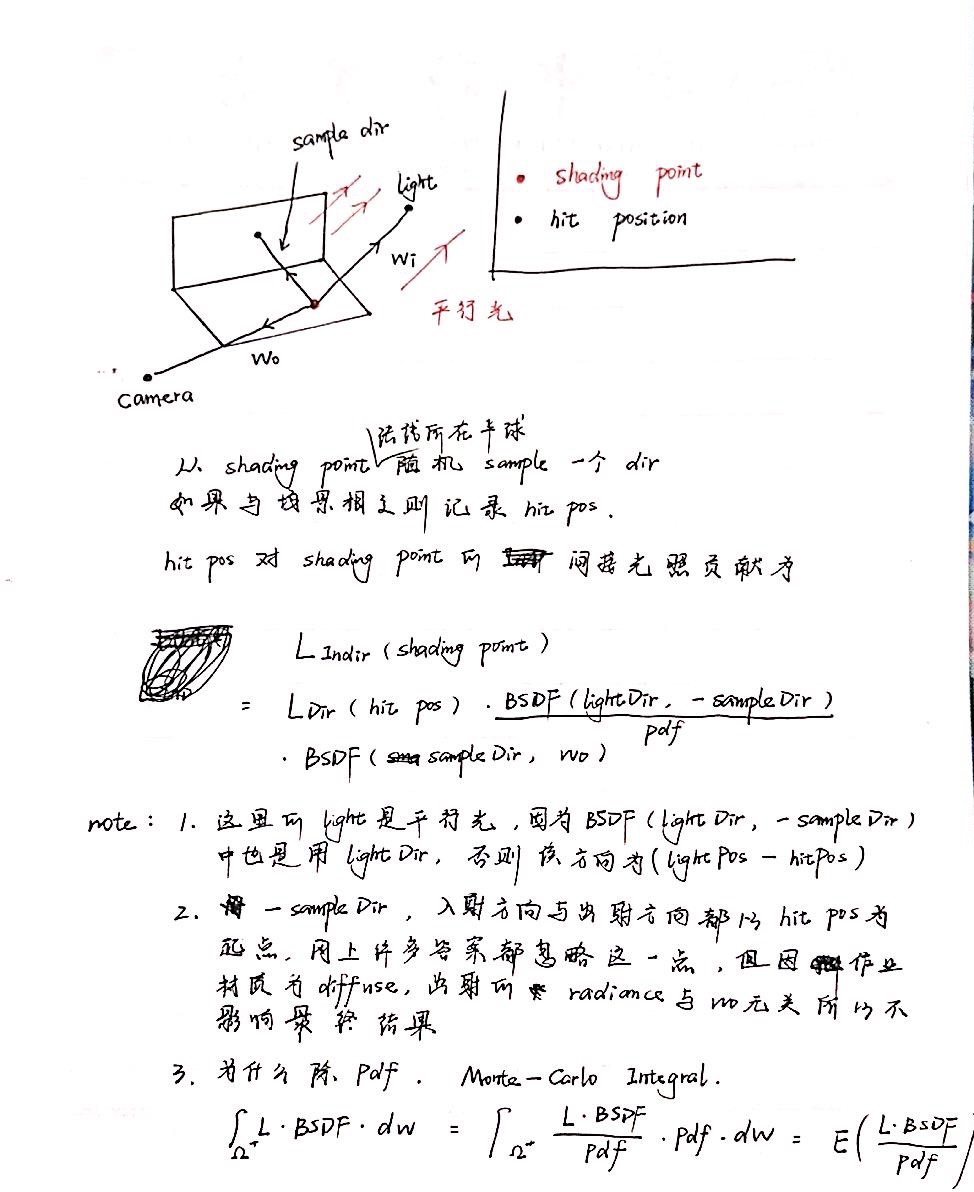 sample dir
light
wi
平行光
wo
Camera
shading point
hit position
法线所在半球
从 shading point 随机 sample 一个 dir
如果与场景相交则记录 hit pos.
hit pos 对 shading point 的 间接光照贡献为
L Indir (shading point)
= L Dir (hit pos) · BSDF (lightDir, -sampleDir) / pdf
· BSDF (sampleDir, wo)
note: 1. 这里的 light 是平行光, 因为 BSDF (light Dir, -sampleDir)
中也是用 lightDir, 否则该方向为 (lightPos - hitPos)
2. -sampleDir, 入射方向与出射方向都以 hit pos 为
起点, 网上许多答案都忽略这一点, 但因作业
材质为 diffuse, 出射的 radiance 与 wo 无关所以不
影响最终结果
3. 为什么除 pdf. Monte-Carlo Integral.
∫Ω+ L · BSDF · dw = ∫Ω+ L · BSDF / pdf · pdf · dw = E( L · BSDF / pdf )